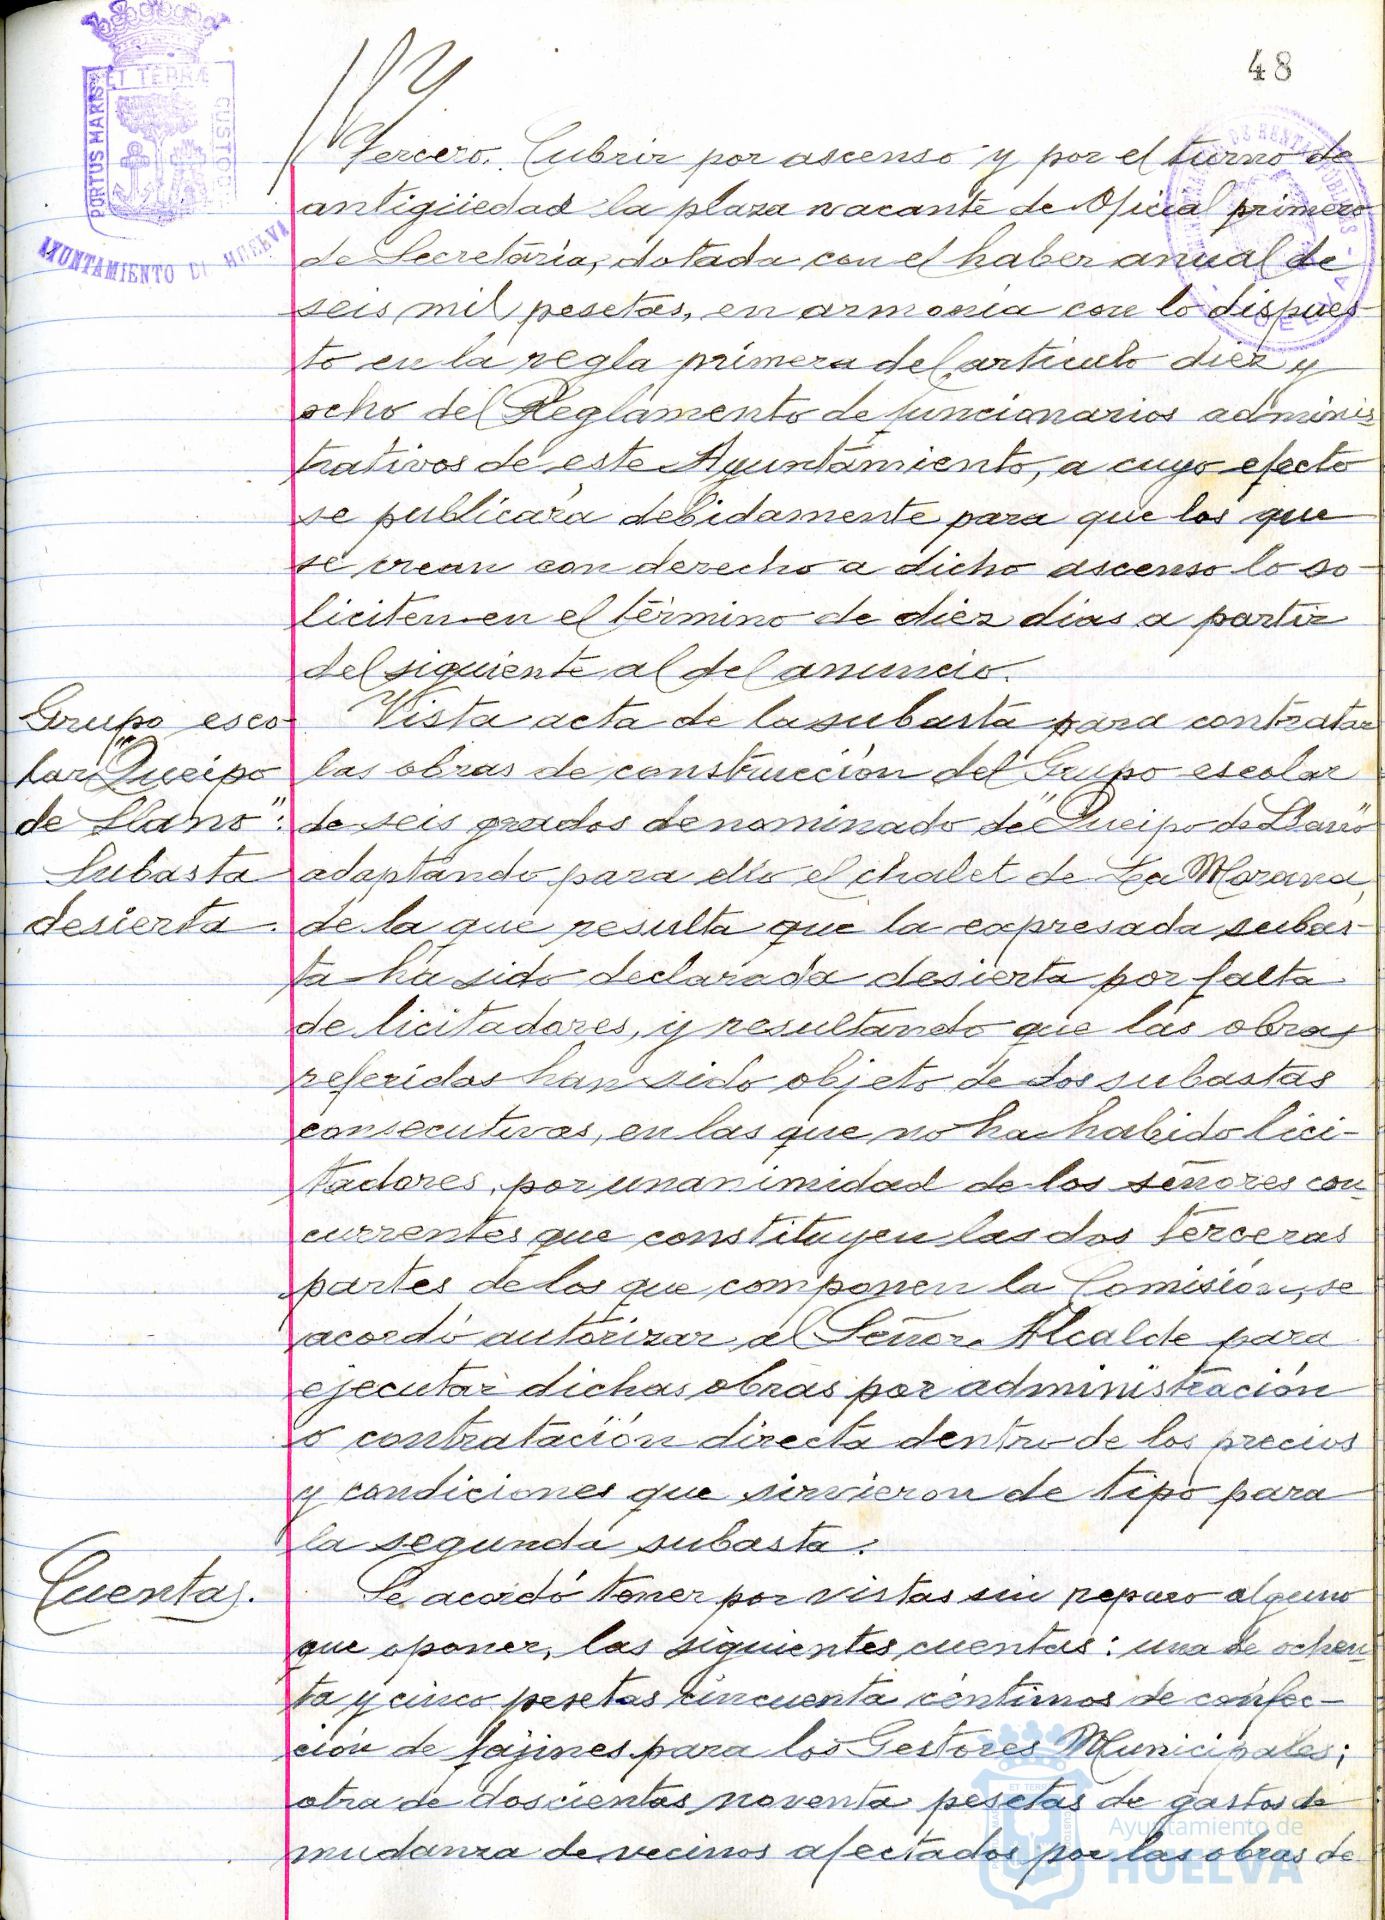 48
ET TERRÆ
PORTUS MARIS
CUSTODI
AYUNTAMIENTO DE HUELVA
Tercero. Cubrir por ascenso y por el turno de
antigüedad la plaza vacante de Oficial primero
de Secretaría, dotada con el haber anual de
seis mil pesetas, en armonía con lo dispues-
to en la regla primera del artículo diez y
ocho del Reglamento de funcionarios adminis-
trativos de este Ayuntamiento, a cuyo efecto
se publicará debidamente para que los que
se crean con derecho a dicho ascenso lo so-
liciten en el término de diez días a partir
del siguiente al del anuncio.
Grupo esco-
lar "Queipo
de Llano":
Subasta
desierta.
Vista acta de la subasta para contratar
las obras de construcción del Grupo escolar
de seis grados denominado de "Queipo de Llano"
adaptando para ello el chalet de La Morana,
de la que resulta que la expresada subas-
ta ha sido declarada desierta por falta
de licitadores, y resultando que las obras
referidas han sido objeto de dos subastas
consecutivas, en las que no ha habido lici-
tadores, por unanimidad de los señores con-
currentes que constituyen las dos terceras
partes de los que componen la Comisión, se
acordó autorizar al Señor Alcalde para
ejecutar dichas obras por administración
o contratación directa dentro de los precios
y condiciones que sirvieron de tipo para
la segunda subasta.
Cuentas.
Se acordó tener por vistas sin reparo alguno
que oponer, las siguientes cuentas: una de ochen-
ta y cinco pesetas cincuenta céntimos de confec-
ción de fajines para los Gestores Municipales;
otra de doscientas noventa pesetas de gastos de
mudanza de vecinos afectados por las obras de
Ayuntamiento de
HUELVA